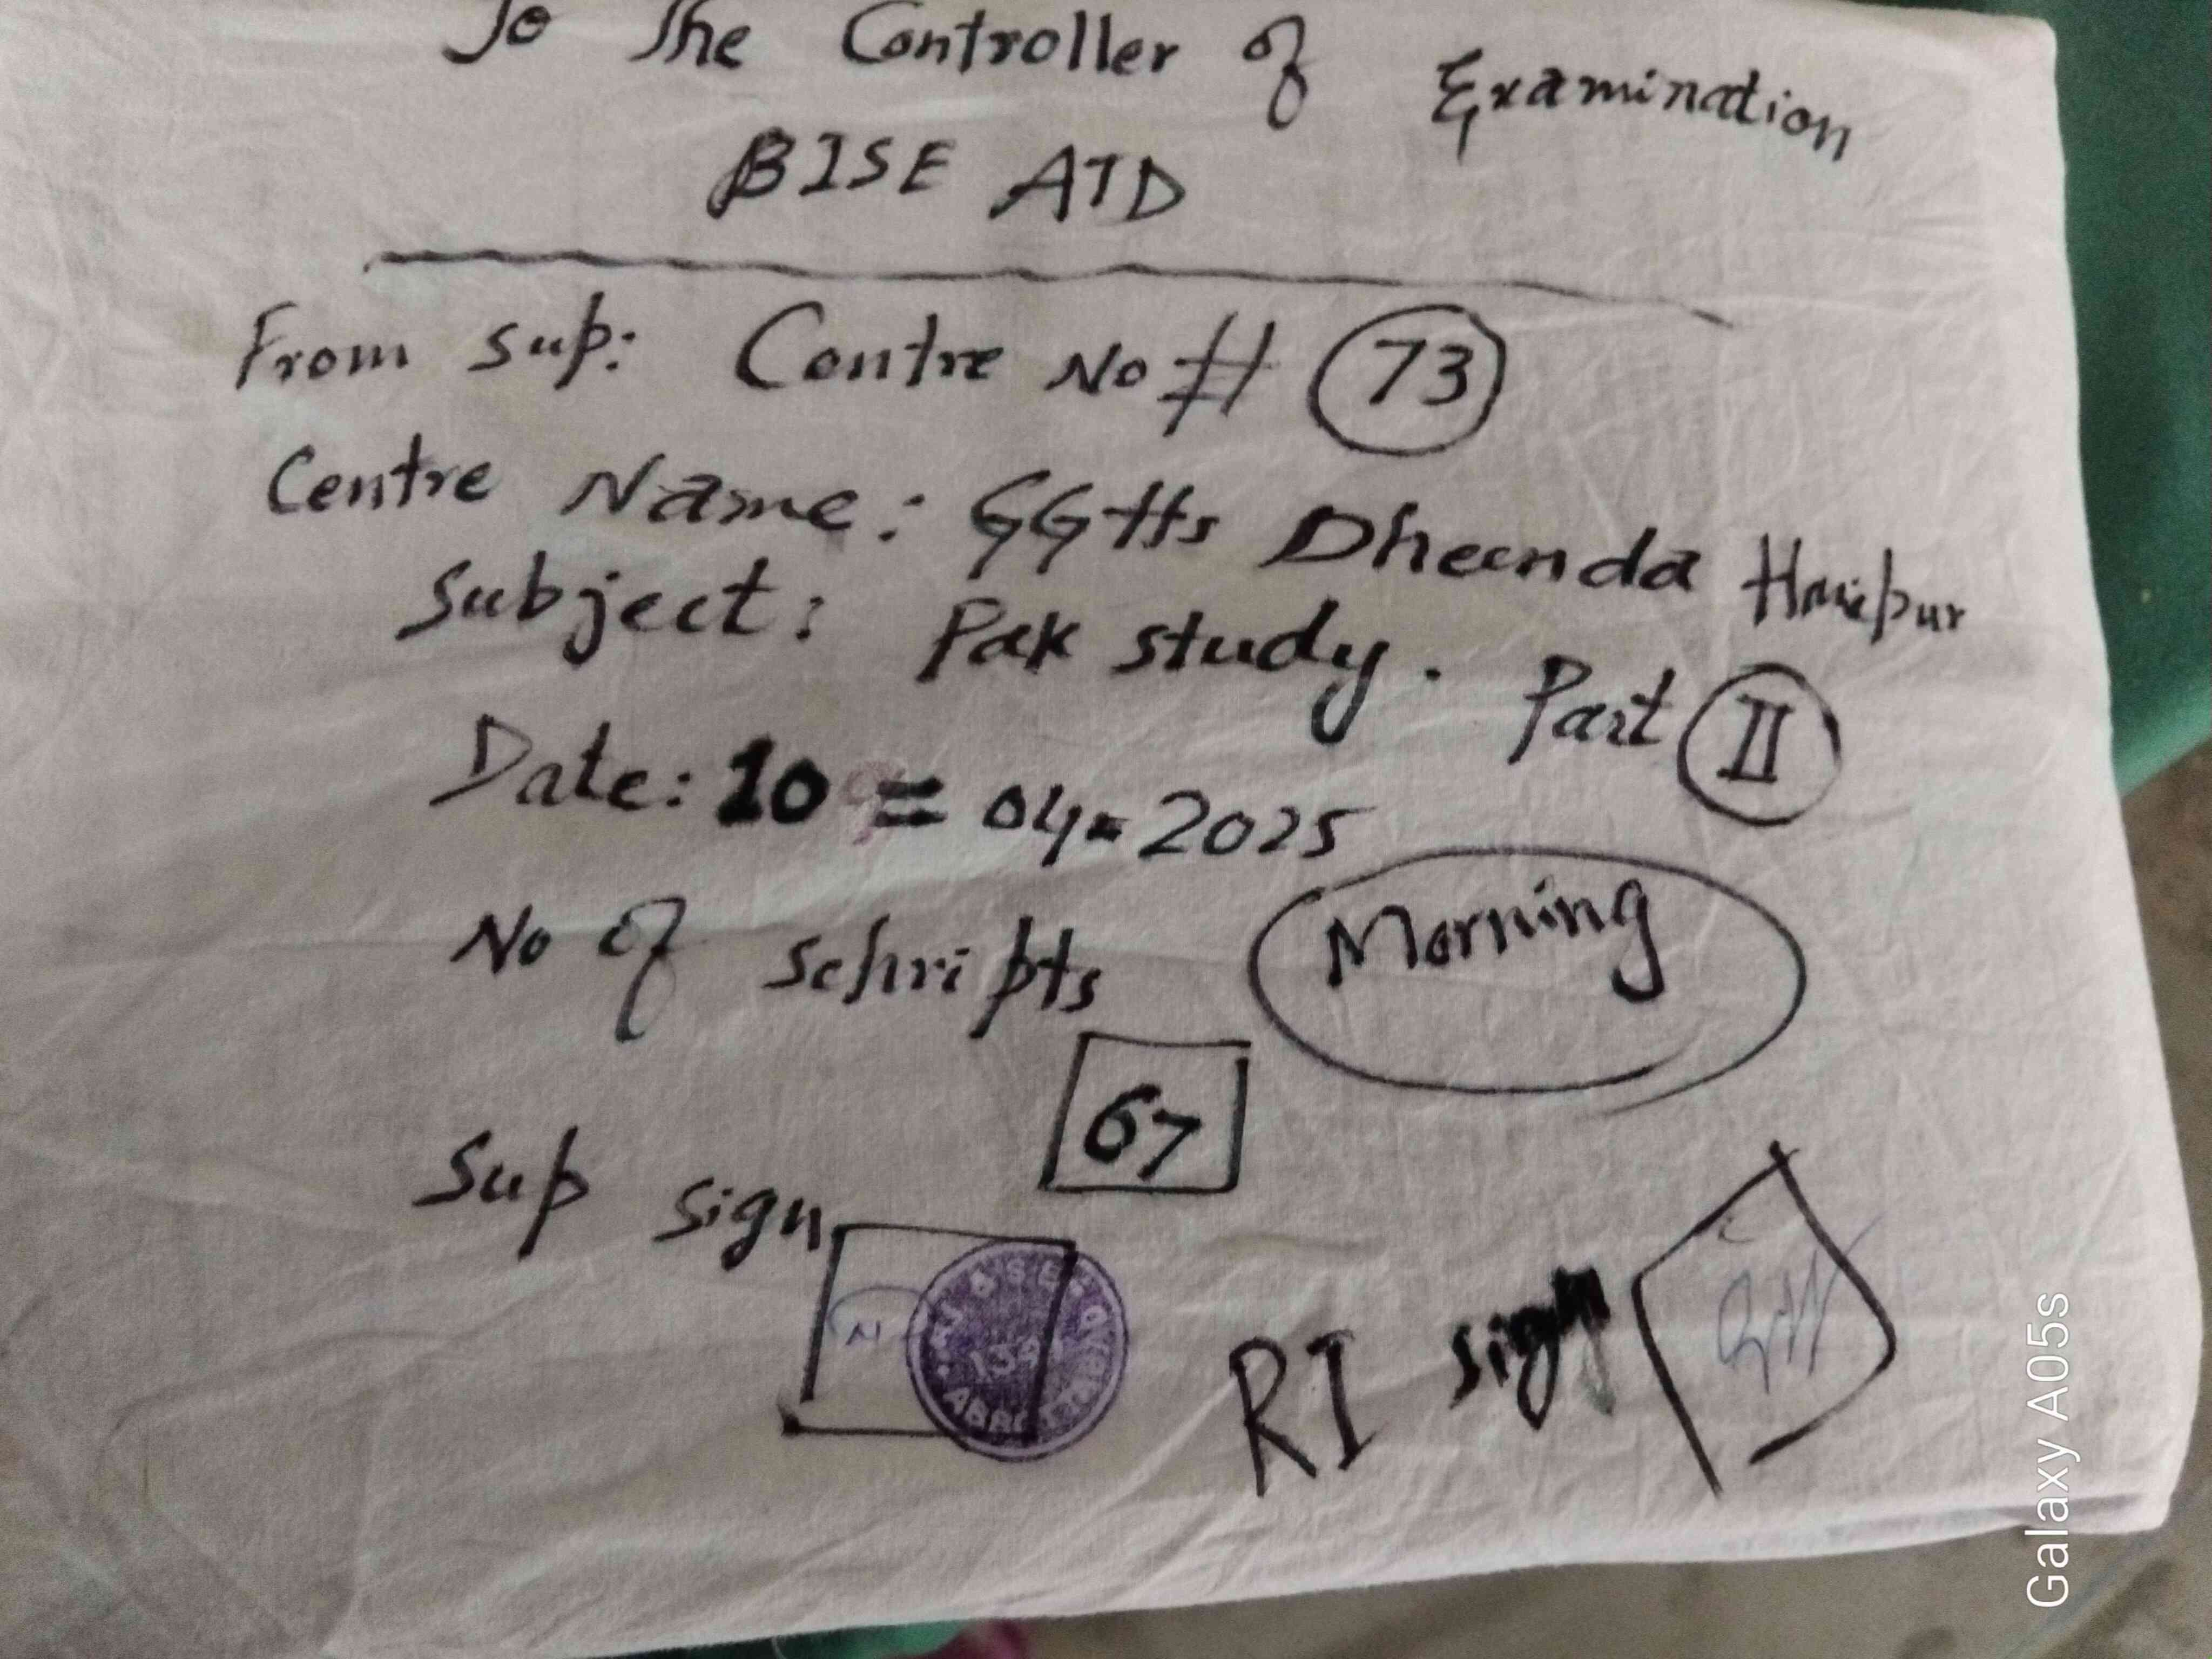 To The Controller of Examination
BISE ATD
From Sup: Centre No # 73
Centre Name: GGHS Dheenda Haripur
Subject: Pak study. Part II
Date: 10 = 04-2025
No of Schripts
Morning
67
Sup sign
RI sign
Galaxy A05s